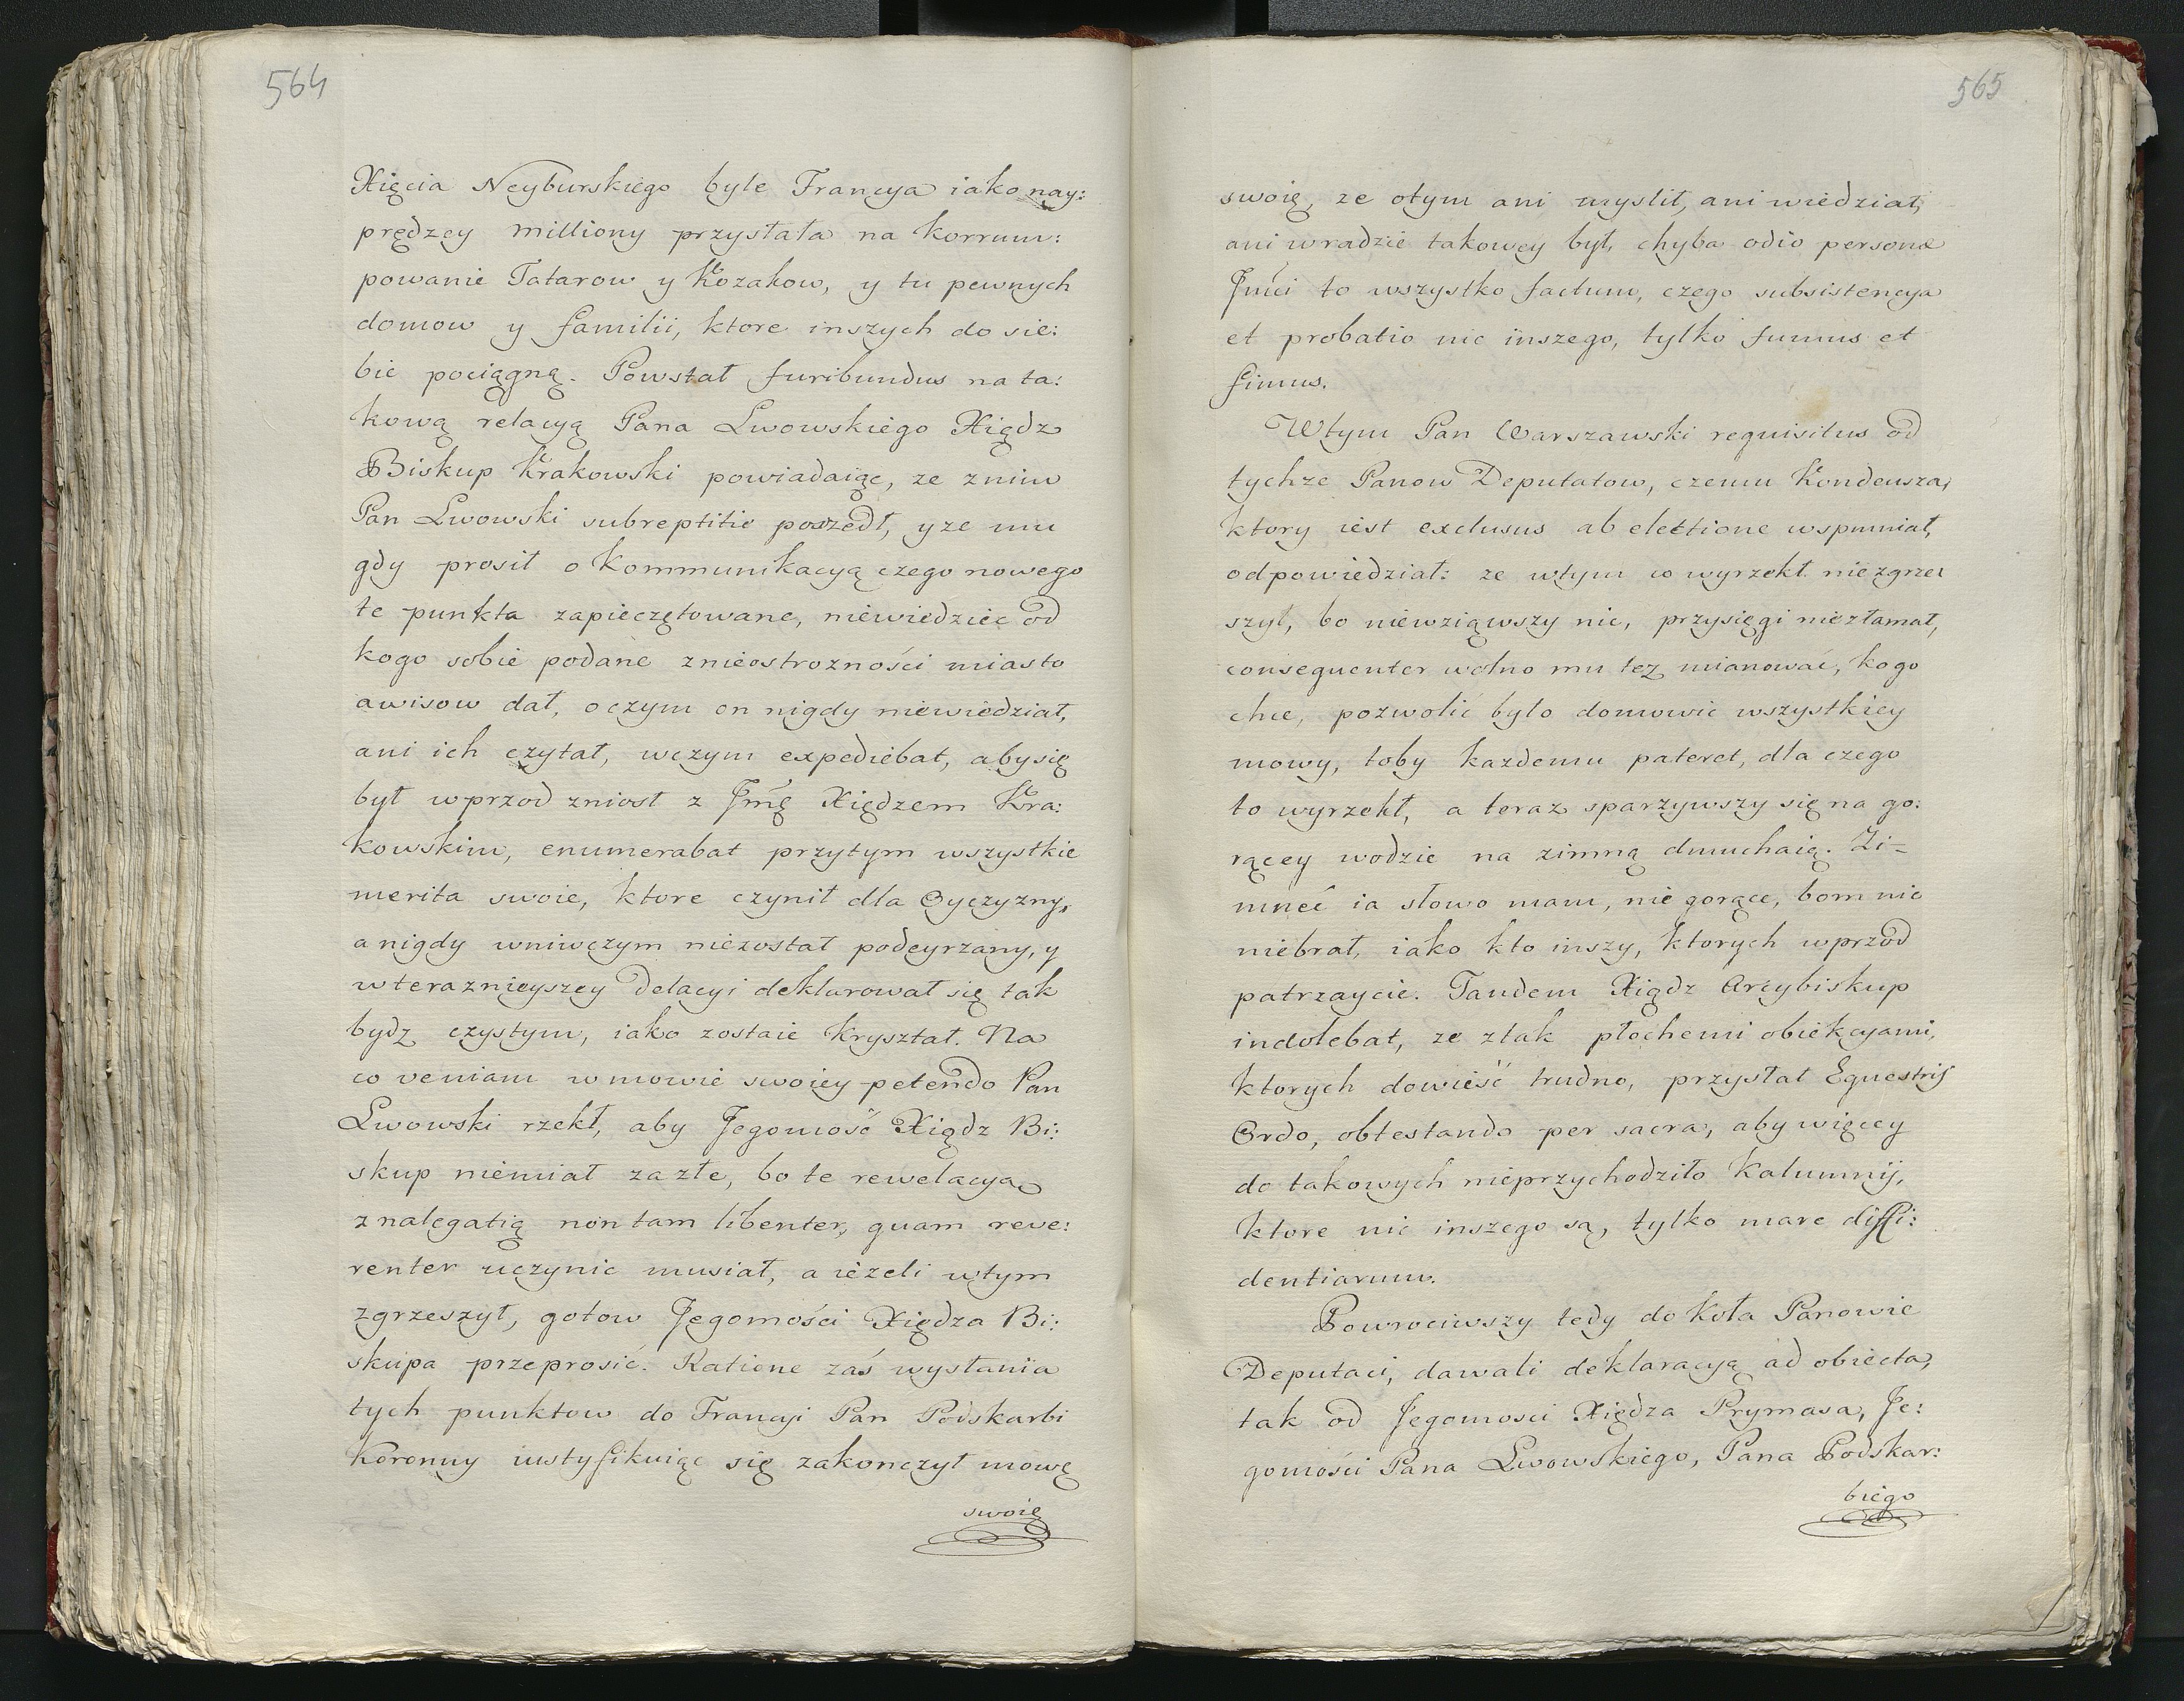 564
Xięcia Neyburskiego byle Francya iako nay:
prędzey milliony przysłała na korrum:
powanie Tatarow y Kozakow, y tu pewnych
domow y familii, ktore inszych do sie:
bie pociągną. Powstał furibundus na ta:
kową relacyą Pana Lwowskiego Xiądz
Biskup Krakowski powiadaiąc, ze znim
Pan Lwowski subreptitie poszedł, y ze mu
gdy prosił o kommunikacyą czego nowego
te punkta zapieczętowane, niewiedziec od
kogo sobie podane znieostrozności miasto
awisow dał, oczym on nigdy niewiedział,
ani ich czytał, wczym expediebat, aby się
był wprzod zniosł z Jmę Xiędzem Kra:
kowskim, enumerabat przytym wszystkie
merita swoie, ktore czynił dla Oyczyzny,
a nigdy wniwczym niezostał podeyrzany, y
wteraznieyszey delacyi deklarował się tak
bydz czystym, iako zostaie kryształ. Na
co veniam w mowie swoiey petendo Pan
Lwowski rzekł, aby Jegomość Xiądz Bi:
skup niemiał za złe, bo te rewelacyą
znalegatią non tam libenter, quam reve:
renter uczynic musiał, a ieżeli wtym
zgrzeszył, gotow Jegomości Xiędza Bi:
skupa przeprosić. Ratione zaś wysłania
tych punktow do Francyi Pan Podskarbi
Koronny iustyfikuiąc się zakonczył mowę
swoię
565
swoię, ze otym ani myslił, ani wiedział,
ani wradzie takowey był, chyba odio personæ
Jmći to wszystko factum, czego subsistencya
et probatio nic inszego, tylko fumus et
fimus.
Wtym Pan Warszawski requisitus od
tychze Panow Deputatow, czemu Kondeusza,
ktory iest exclusus ab elettione wspmniał,
odpowiedział: ze wtym co wyrzekł niezgrze:
szył, bo niewziąwszy nic, przysięgi niezłamał,
consequenter wolno mu tez mianować, kogo
chce, pozwolić było domowic wszystkiey
mowy, toby kazdemu pateret, dla czego
to wyrzekł, a teraz sparzywszy się na go:
rącey wodzie na zimną dmuchaią. Zi-
mneć ia słowo mam, nie gorące, bom nic
niebrał, iako kto inszy, ktorych wprzod
patrzaycie. Tandem Xiądz Arcybiskup
indolebat, ze ztak płochemi obiekcyami,
ktorych dowieść trudno, przysłał Equestris
Ordo, obtestando per sacra, aby więcey
do takowych nieprzychodziło kalumnij,
ktore nic inszego są, tylko mare diffi:
dentiarum.
Powrociwszy tedy do Koła Panowie
Deputaci, dawali deklaracyą ad obiecta,
tak od Jegomosci Xiędza Prymasa, Je:
gomości Pana Lwowskiego, Pana Podskar:
biego